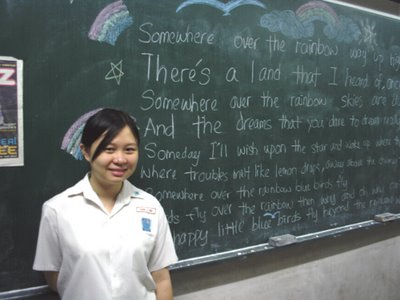 Somewhere over the rainbow way up high
There's a land that I heard of, once
Somewhere over the rainbow skies are
And the dreams that you dare to dream really
Someday I'll wish upon the star and wake up where
where troubles melt like lemon drops, away above the chimney
Somewhere over the rainbow blue birds fly
birds fly over the rainbow then why and oh why can
happy little blue birds fly beyond the rainbow